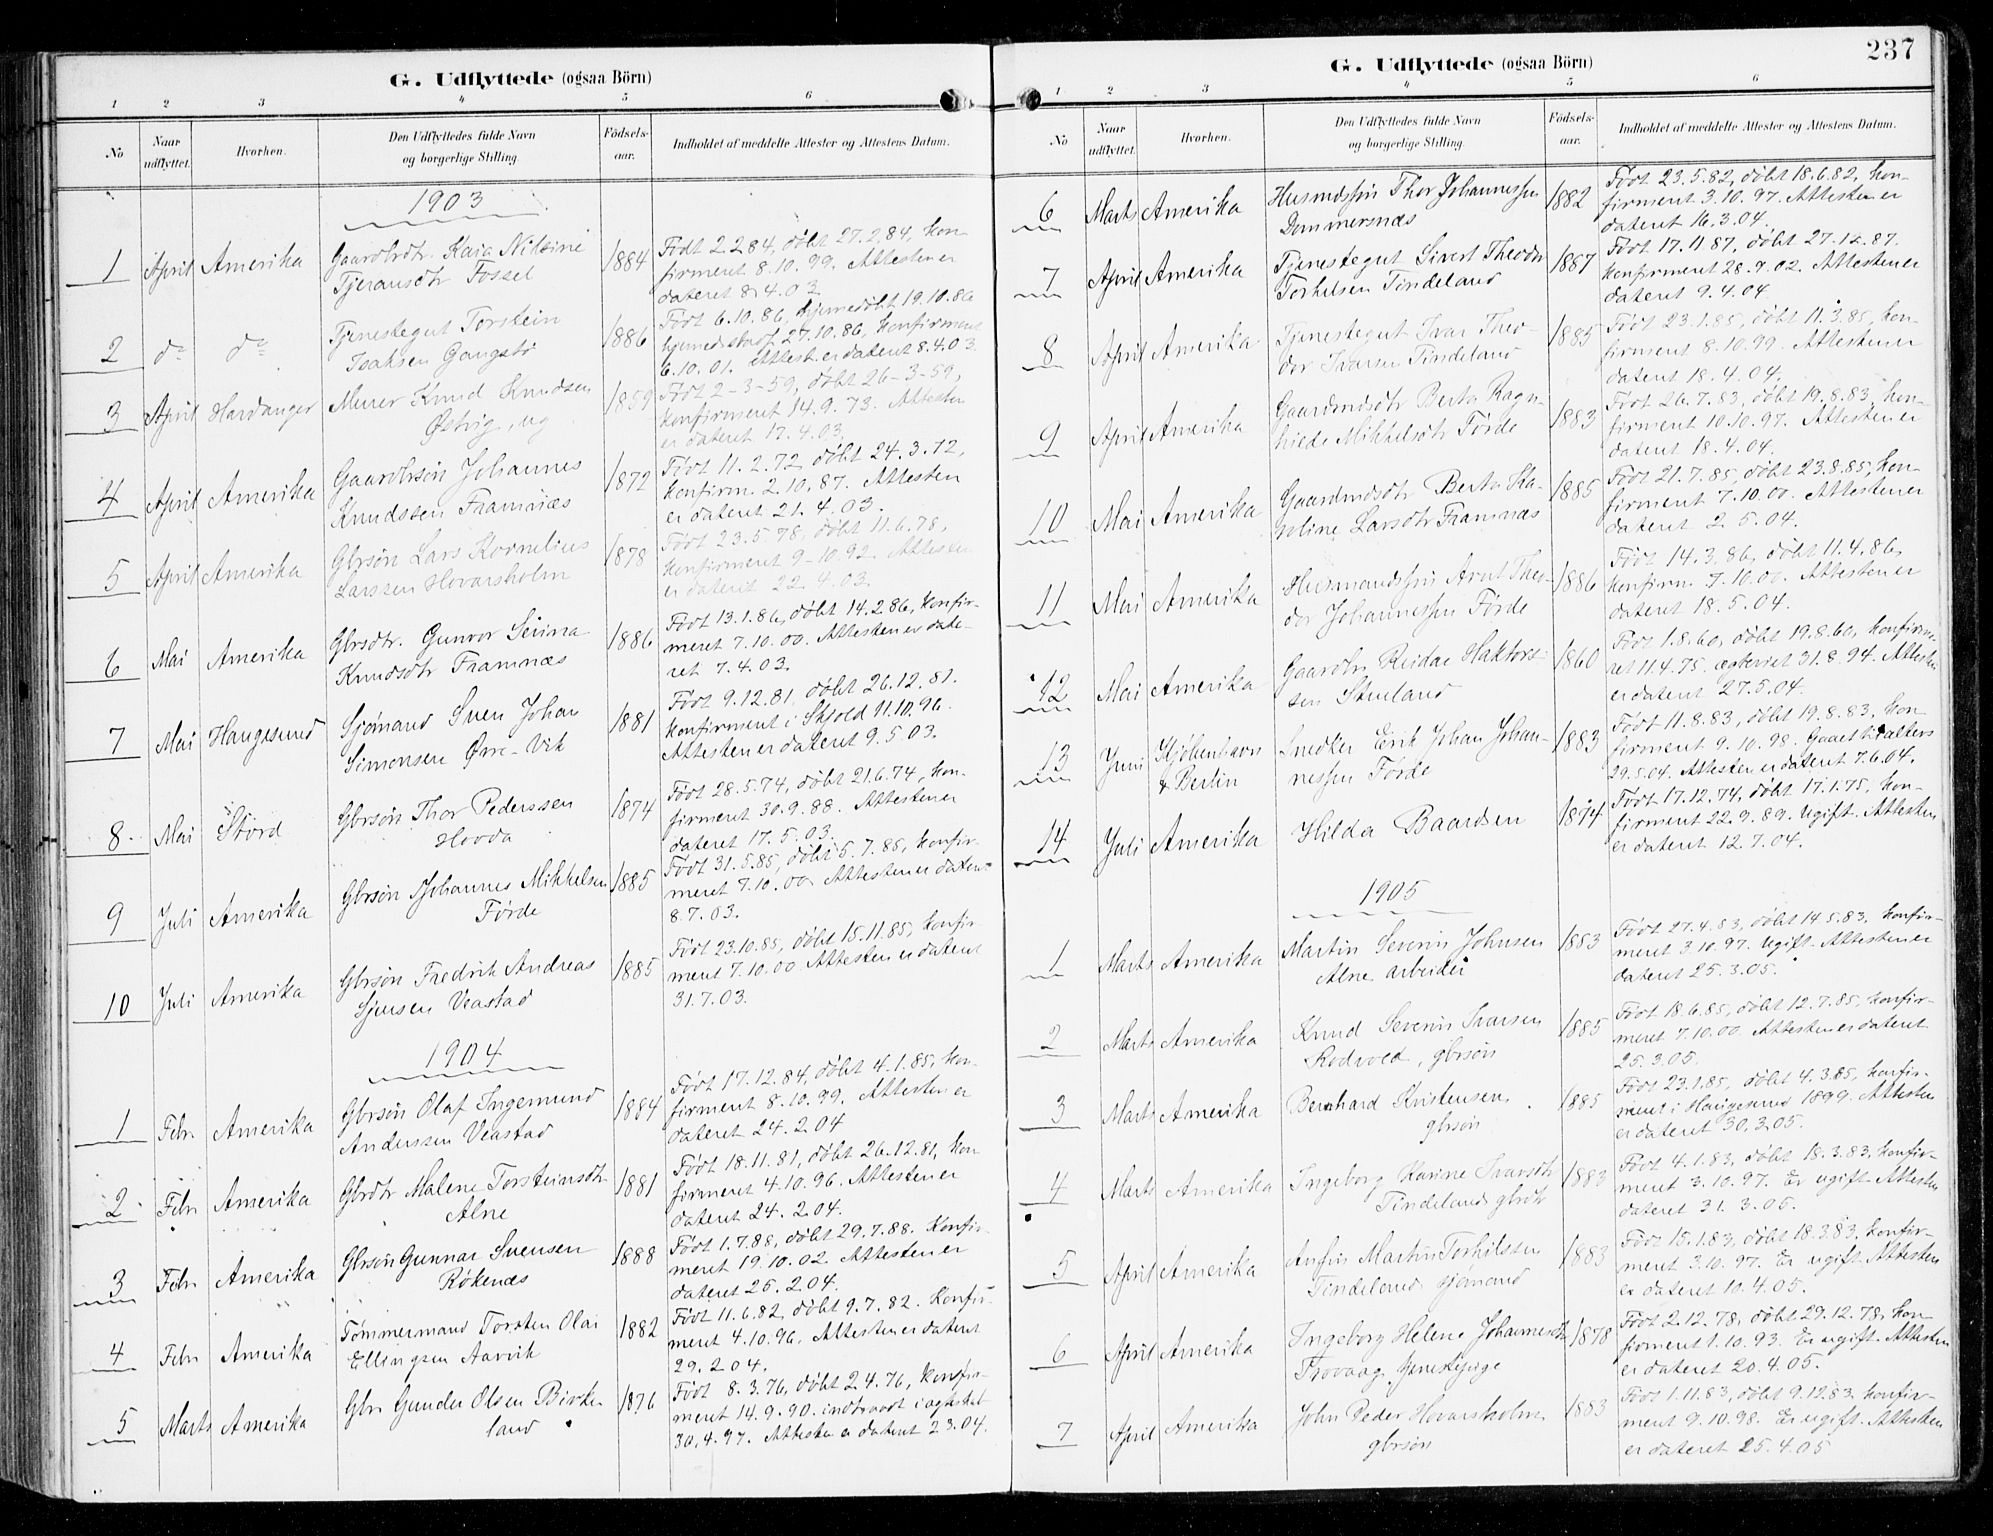 G. Udflyttede (ogsaa Börn)
1 2 3 4 5 6
No
Naar udflyttet.
Hvorhen.
Den Udflyttedes fulde Navn og borgerlige Stilling.
Fødsels-aar.
Indholdet af meddelte Attester og Attestens Datum.
1903
1 April Amerika Gaardbrdtr. Kaia Nilsine 1884 Født 2.2.84, døbt 27.2.84, kon-
Tjeransdtr Fossel firmeret 8.10.99. Attesten er
dateret 8.4.03
2 do do Tjenestegut Torstein 1886 Født 6.10.86, hjemmedøbt 19.10.86
Isaksen Gangstø 27.10.86, konfirmeret
6.10.01. Attest. er dateret 8.4.03.
3 April Hardanger Murer Knud Knudsen 1859 Født 2-3-59, døbt 26-3-59,
konfirmeret 14.9.73. Attesten
er dateret 17.4.03.
4 April Amerika Gaardbrsøn Johannes 1872 Født 11.2.72, døbt 24.3.72,
Knudssen Framnæs konfirm. 2.10.87. Attesten
er dateret 21.4.03.
5 April Amerika Gbrsøn Lars Kornelius 1878 Født 23.5.78, døbt 11.6.78,
Larssen Hovarsholm konfirmeret 9-10.92. Attesten
er dateret 22.4.03.
6 Mai Amerika Gbrsdtr. Gunvor Serina 1886 Født 13.1.86, døbt 14.2.86, konfir-
Knudsdtr Framnæs meret 7.10.00. Attesten er date-
ret 7.4.03.
7 Mai Haugesund Sjømand Sven Johan 1881 Født 9.12.81, døbt 26.12.81.
Simonsen Øvre-Vik konfirmeret i Skjold 11.10.96.
Attesten er dateret 9.5.03.
8. Mai Stord Gbrsøn Thor Pederssen 1874 Født 28.5.74, døbt 21.6.74, kon-
Hovda firmeret 30.9.88. Attesten er
dateret 17.5.03.
9 Juli Amerika Gbrsøn Johannes Mikkelsen 1885 Født 31.5.85, døbt 5.7.85, konfir-
Førde meret 7.10.00 Attesten er dateret
8.7.03.
10 Juli Amerika Gbrsøn Fredrik Andreas 1885 Født 23.10.85, døbt 15.11.85, konfir-
Sjursen Veastad meret 7.10.00 Attesten er dateret
31.7.03.
1904
1 Febr Amerika Gbrsøn Olaf Ingemund 1884 Født 17.12.84, døbt 4.1.85, kon-
Anderssen Veastad firmeret 8.10.99. Attesten er
dateret 24.2.04
2 Febr Amerika Gbrdtr Malene Torsteinsdtr 1881 Født 18.11.81, døbt 26.12.81, kon
Alne firmeret 4.10.96. Attesten er
dateret 24.2.04.
3 Febr Amerika Gbrsøn Gunnar Svensen 1888 Født 1.7.88, døbt 29.7.88. Konfir-
Røkenæs meret 19.10.02. Attesten er
dateret 25.2.04.
4 Febr Amerika Tømmermand Torsten Olai 1882 Født 11.6.82, døbt 9.7.82. Konfir-
Ellingsen Aarvik meret 4.10.96. Attesten er dateret
29.2.04.
5 Marts Amerika Gbr Gunder Olsen Birke- 1876 Født 8.3.76, døbt 2.4.76, konfir-
land meret 14.9.90. indtraadt i
30.4.97. Attesten er dateret 2.3.04.
237
G. Udflyttede (ogsaa Börn)
1 2 3 4 5 6
No
Naar udflyttet.
Hvorhen.
Den Udflyttedes fulde Navn og borgerlige Stilling.
Fødsels-aar.
Indholdet af meddelte Attester og Attestens Datum.
6 Marts Amerika Husmdssøn Thor Johannessen 1882 Født 23.5.82, døbt 18.6.82, kon-
Dommersnæs firmeret 3.10.97. Attesten er
dateret 16.3.04.
7 April Amerika Tjenestegut Sivert Theodor 1887 Født 17.11.87, døbt 27.12.87.
Torkilsen Tindeland konfirmeret 28.9.02. Attesten er
dateret 9.4.04.
8 April Amerika Tjenestegut Ivar Theo- 1885 Født 23.1.85, døbt 11.3.85, kon-
dor Ivarsen Tindeland firmeret 8.10.99. Attesten er
dateret 18.4.04.
9 April Amerika Gaardmdsdtr Berta Ragn- 1883 Født 26.7.83, døbt 19.8.83, kon-
hilde Mikkelsdtr Førde firmeret 10.10.97. Attesten er
dateret 18.4.04.
10 Mai Amerika Gaardmdsdtr Berta Ka- 1885 Født 21.7.85, døbt 23.8.85, kon-
roline Larsdtr Framnæs firmeret 7.10.00. Attesten er
dateret 2.5.04.
11 Mai Amerika Husmandssøn Arnt Theo- 1886 Født 14.3.86, døbt 11.4.86,
dor Johannessen Førde konfirm. 7.10.00. Attesten er
dateret 18.5.04.
12 Mai Amerika Gaardbr Reidar Haktors- 1860 Født 1.8.60, døbt 19.8.60, konfirme-
sen Stueland ret 11.4.75. ægteviet 31.8.94. Attesten
er dateret 27.5.04.
13 Juni Kjøbenhavn Snedker Erik Johan Johan- 1883 Født 11.8.83, døbt 19.8.83, kon-
& Berlin nessen Førde firmeret 9.10.98.
29.5.04. Attesten er dateret 7.6.04.
14 Juli Amerika Hilda Baardsen 1874 Født 17.12.74, døbt 17.1.75, kon-
firmeret 22.9.89. Ugift. Attesten
er dateret 12.7.04.
1905
1 Marts Amerika Martin Severin Johnsen 1883 Født 27.4.83, døbt 14.5.83, konfir-
Alne arbeider meret 3.10.97. Ugift. Attesten er
dateret 25.3.05.
2 Marts Amerika Knud Severin Ivarsen 1885 Født 18.6.85, døbt 12.7.85, konfir-
Rodvold, gbrsøn meret 7.10.00. Attesten er dateret
25.3.05.
3 Marts Amerika Bernhard Kristensen 1885 Født 23.1.85, døbt 4.3.85, konfir-
gbrsøn meret i Haugesund 1899. Attesten
er dateret 30.3.05.
4 Marts Amerika Ingeborg Karine Ivarsdtr 1883 Født 4.1.83, døbt 18.3.83, konfir-
Tindeland gbrdtr meret 3.10.97. Er ugift. Attesten
dateret 31.3.05.
5 April Amerika Anfin Martin Torkilssen 1883 Født 15.1.83, døbt 18.3.83, konfir-
Tindeland, sjømand meret 3.10.97. Er ugift. Attesten
er dateret 10.4.05.
6 April Amerika Ingeborg Helene Johannesdtr 1878 Født 2.12.78, døbt 29.12.78, kon-
Trovaag, tjenestepige firmeret 1.10.93. Er ugift. Attesten
er dateret 20.4.05.
7 April Amerika John Peder Hovarsholm 1883 Født 1.11.83, døbt 9.12.83, konfir-
gbrsøn meret 9.10.98. Er ugift. Attesten
er dateret 25.4.05